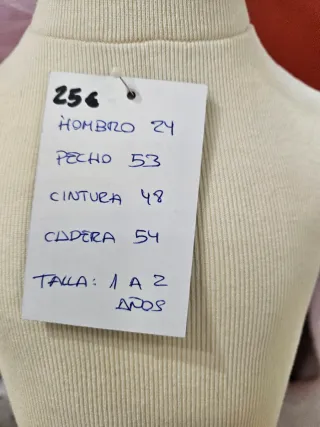 25€
HOMBRO 24
PECHO 53
CINTURA 48
CADERA 54
TALLA: 1 A 2
AÑOS